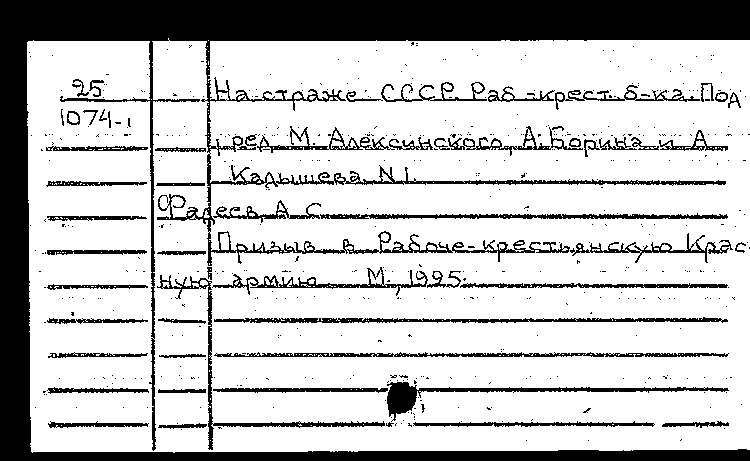 25 На страже СССР. Раб-крест. б-ка. Под
1074-1
ред. М. Алексинского, А. Борина и А.
Кадышева. N 1.
Фадеев, А. С.
Призыв в Рабоче-крестьянскую Крас-
ную армию М., 1995.